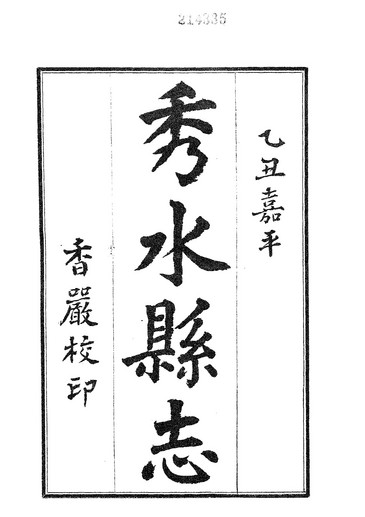 214335
乙丑嘉平
秀水縣志
香嚴校印